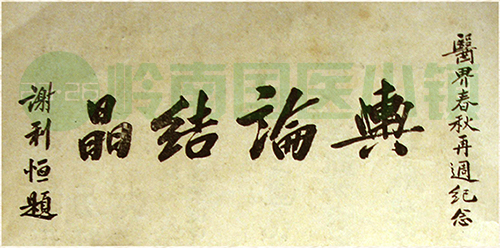 醫界春秋再週紀念
輿論結晶
謝利恒題
岭南国医小镇